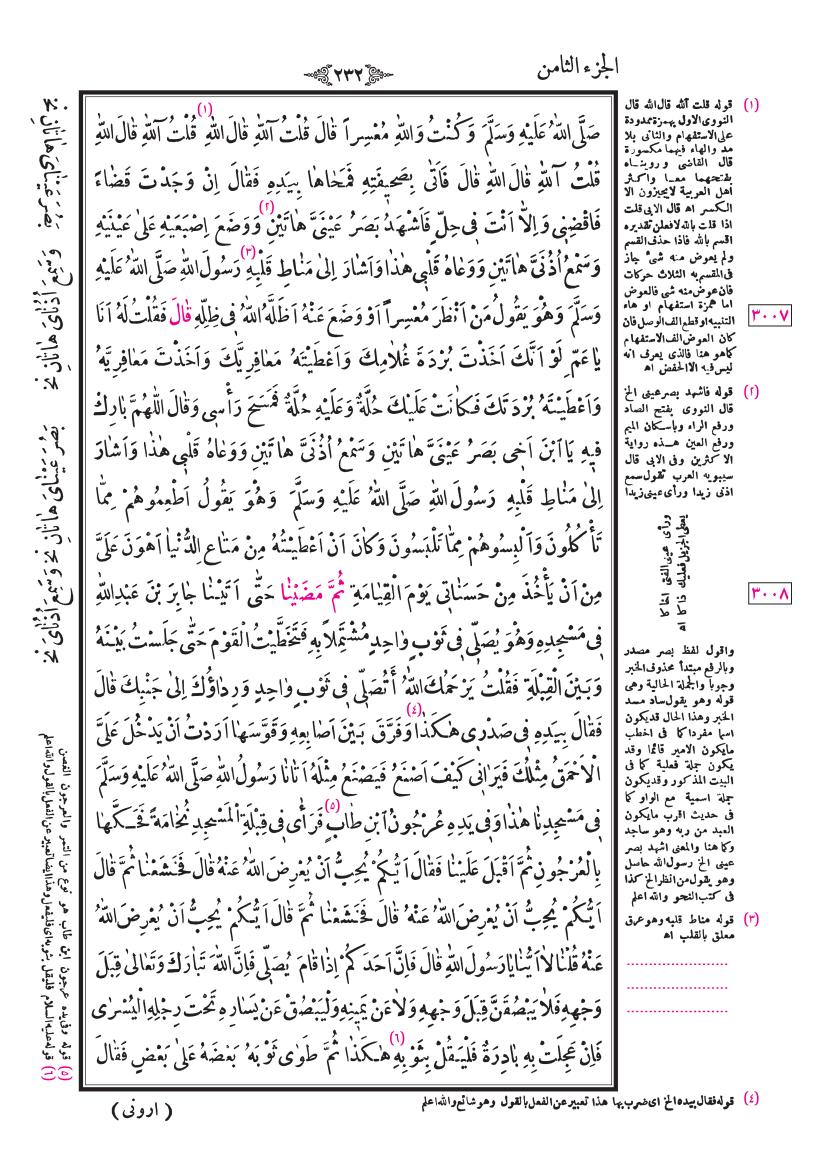 الجزء الثامن
٢٣٢
صَلَّى اللهُ عَلَيْهِ وَسَلَّمَ وَكُنْتُ وَاللهِ مُعْسِراً قَالَ قُلْتُ آللهِ قَالَ اللهِ (١) قُلْتُ آللهِ قَالَ اللهِ
قُلْتُ آللهِ قَالَ اللهِ قَالَ فَأَتَى بِصَحِيفَتِهِ فَمَحَاهَا بِيَدِهِ فَقَالَ اِنْ وَجَدْتَ قَضَاءً
فَاقْضِنِي وَاِلاَّ اَنْتَ فِي حِلٍّ فَاَشْهَدُ بَصَرُ عَيْنَيَّ هَاتَيْنِ (٢) وَوَضَعَ اِصْبَعَيْهِ عَلَى عَيْنَيْهِ
وَسَمْعُ اُذُنَيَّ هَاتَيْنِ وَوَعَاهُ قَلْبِي هٰذَا وَاَشَارَ اِلَى مَنَاطِ قَلْبِهِ (٣) رَسُولَ اللهِ صَلَّى اللهُ عَلَيْهِ
وَسَلَّمَ وَهُوَ يَقُولُ مَنْ اَنْظَرَ مُعْسِراً اَوْ وَضَعَ عَنْهُ اَظَلَّهُ اللهُ فِي ظِلِّهِ قَالَ فَقُلْتُ لَهُ اَنَا
يَا عَمِّ لَوْ اَنَّكَ اَخَذْتَ بُرْدَةَ غُلَامِكَ وَاَعْطَيْتَهُ مَعَافِرِيَّكَ وَاَخَذْتَ مَعَافِرِيَّهُ
وَاَعْطَيْتَهُ بُرْدَتَكَ فَكَانَتْ عَلَيْكَ حُلَّةٌ وَعَلَيْهِ حُلَّةٌ فَمَسَحَ رَأْسِي وَقَالَ اللّٰهُمَّ بَارِكْ
فِيهِ يَا ابْنَ اَخِي بَصَرُ عَيْنَيَّ هَاتَيْنِ وَسَمْعُ اُذُنَيَّ هَاتَيْنِ وَوَعَاهُ قَلْبِي هٰذَا وَاَشَارَ
اِلَى مَنَاطِ قَلْبِهِ رَسُولَ اللهِ صَلَّى اللهُ عَلَيْهِ وَسَلَّمَ وَهُوَ يَقُولُ اَطْعِمُوهُمْ مِمَّا
تَأْكُلُونَ وَاَلْبِسُوهُمْ مِمَّا تَلْبَسُونَ وَكَانَ اَنْ اَعْطَيْتُهُ مِنْ مَتَاعِ الدُّنْيَا اَهْوَنَ عَلَيَّ
مِنْ اَنْ يَأْخُذَ مِنْ حَسَنَاتِي يَوْمَ الْقِيَامَةِ ثُمَّ مَضَيْنَا حَتَّى اَتَيْنَا جَابِرَ بْنَ عَبْدِ اللهِ
فِي مَسْجِدِهِ وَهُوَ يُصَلِّي فِي ثَوْبٍ وَاحِدٍ مُشْتَمِلاً بِهِ فَتَخَطَّيْتُ الْقَوْمَ حَتَّى جَلَسْتُ بَيْنَهُ
وَبَيْنَ الْقِبْلَةِ فَقُلْتُ يَرْحَمُكَ اللهُ أَتُصَلِّي فِي ثَوْبٍ وَاحِدٍ وَرِدَاؤُكَ اِلَى جَنْبِكَ قَالَ
فَقَالَ بِيَدِهِ فِي صَدْرِي هٰكَذَا (٤) وَفَرَّقَ بَيْنَ اَصَابِعِهِ وَقَوَّسَهَا اَرَدْتُ اَنْ يَدْخُلَ عَلَيَّ
الْاَحْمَقُ مِثْلُكَ فَيَرَانِي كَيْفَ اَصْنَعُ فَيَصْنَعُ مِثْلَهُ اَتَانَا رَسُولُ اللهِ صَلَّى اللهُ عَلَيْهِ وَسَلَّمَ
فِي مَسْجِدِنَا هٰذَا وَفِي يَدِهِ عُرْجُونُ ابْنِ طَابٍ (٥) فَرَأَى فِي قِبْلَةِ الْمَسْجِدِ نُخَامَةً فَحَكَّهَا
بِالْعُرْجُونِ ثُمَّ اَقْبَلَ عَلَيْنَا فَقَالَ اَيُّكُمْ يُحِبُّ اَنْ يُعْرِضَ اللهُ عَنْهُ قَالَ فَخَشَعْنَا ثُمَّ قَالَ
اَيُّكُمْ يُحِبُّ اَنْ يُعْرِضَ اللهُ عَنْهُ قَالَ فَخَشَعْنَا ثُمَّ قَالَ اَيُّكُمْ يُحِبُّ اَنْ يُعْرِضَ اللهُ
عَنْهُ قُلْنَا لَا اَيُّنَا يَا رَسُولَ اللهِ قَالَ فَاِنَّ اَحَدَكُمْ اِذَا قَامَ يُصَلِّي فَاِنَّ اللهَ تَبَارَكَ وَتَعَالَى قِبَلَ
وَجْهِهِ فَلَا يَبْصُقَنَّ قِبَلَ وَجْهِهِ وَلَا عَنْ يَمِينِهِ وَلْيَبْصُقْ عَنْ يَسَارِهِ تَحْتَ رِجْلِهِ الْيُسْرَى
فَاِنْ عَجِلَتْ بِهِ بَادِرَةٌ فَلْيَقُلْ بِثَوْبِهِ هٰكَذَا (٦) ثُمَّ طَوَى ثَوْبَهُ بَعْضَهُ عَلَى بَعْضٍ فَقَالَ
(١) قوله قلت آلله قال الله قال
النووى الاول بهمزة ممدودة
على الاستفهام والثانى بلا
مد والهاء فيهما مكسورة
قال القاضى ورويناه
بفتحهما معا واكثر
أهل العربية لايجيزون الا
الكسر اه قال الابى قلت
اذا قلت بالله لافعلن تقديره
اقسم بالله فاذا حذف القسم
ولم يعوض منه شىء جاز
فى المقسم به الثلاث حركات
فان عوض منه شى فالعوض
اما همزة استفهام او هاء
التنبيه او قطع الف الوصل فان
كان العوض الف الاستفهام
كما هو هنا فالذى يعرف انه
ليس فيه الا الخفض اه
٣٠٠٧
(٢) قوله فاشهد بصر عينى الخ
قال النووى بفتح الصاد
ورفع الراء وباسكان الميم
ورفع العين هـذه رواية
الاكثرين وفى الابى قال
سيبويه العرب تقول سمع
اذنى زيدا ورأى عينى زيدا
ورأى عينى الفتى اخاكا
يعطى الجزيل فعليك ذاكا اه
٣٠٠٨
واقول لفظ بصر مصدر
وبالرفع مبتدأ محذوف الخبر
وجوبا والجملة الحالية وهى
قوله وهو يقول ساد مسد
الخبر وهذا الحال قد يكون
اسما مفردا كما فى اخطب
مايكون الامير قائما وقد
يكون جملة فعلية كما فى
البيت المذكور وقد يكون
جملة اسمية مع الواو كما
فى حديث اقرب مايكون
العبد من ربه وهو ساجد
وكما هنا والمعنى اشهد بصر
عينى الخ رسول الله حاصل
وهو يقول من انظر الخ كذا
فى كتب النحو والله اعلم
(٣) قوله مناط قلبه وهو عرق
معلق بالقلب اه
(٤) قوله فقال بيده الخ اى ضرب بها هذا تعبير عن الفعل بالقول وهو شائع والله اعلم
بَصُرَ عَيْنَاىَ هَاتَانِ نخ وَسَمِعَ اُذُنَاىَ هَاتَانِ نخ
بَصُرَ عَيْنَاىَ هَاتَانِ نخ وَسَمِعَ اُذُنَاىَ نخ
(٥) قوله وفى يده عرجون ابن طاب هو نوع من التمر والعرجون الغصن
(٦) قوله عليه السلام فليقل بثوبه اى فليفعل وهذا ايضا تعبير عن الفعل بالقول والله اعلم
( ارونى )